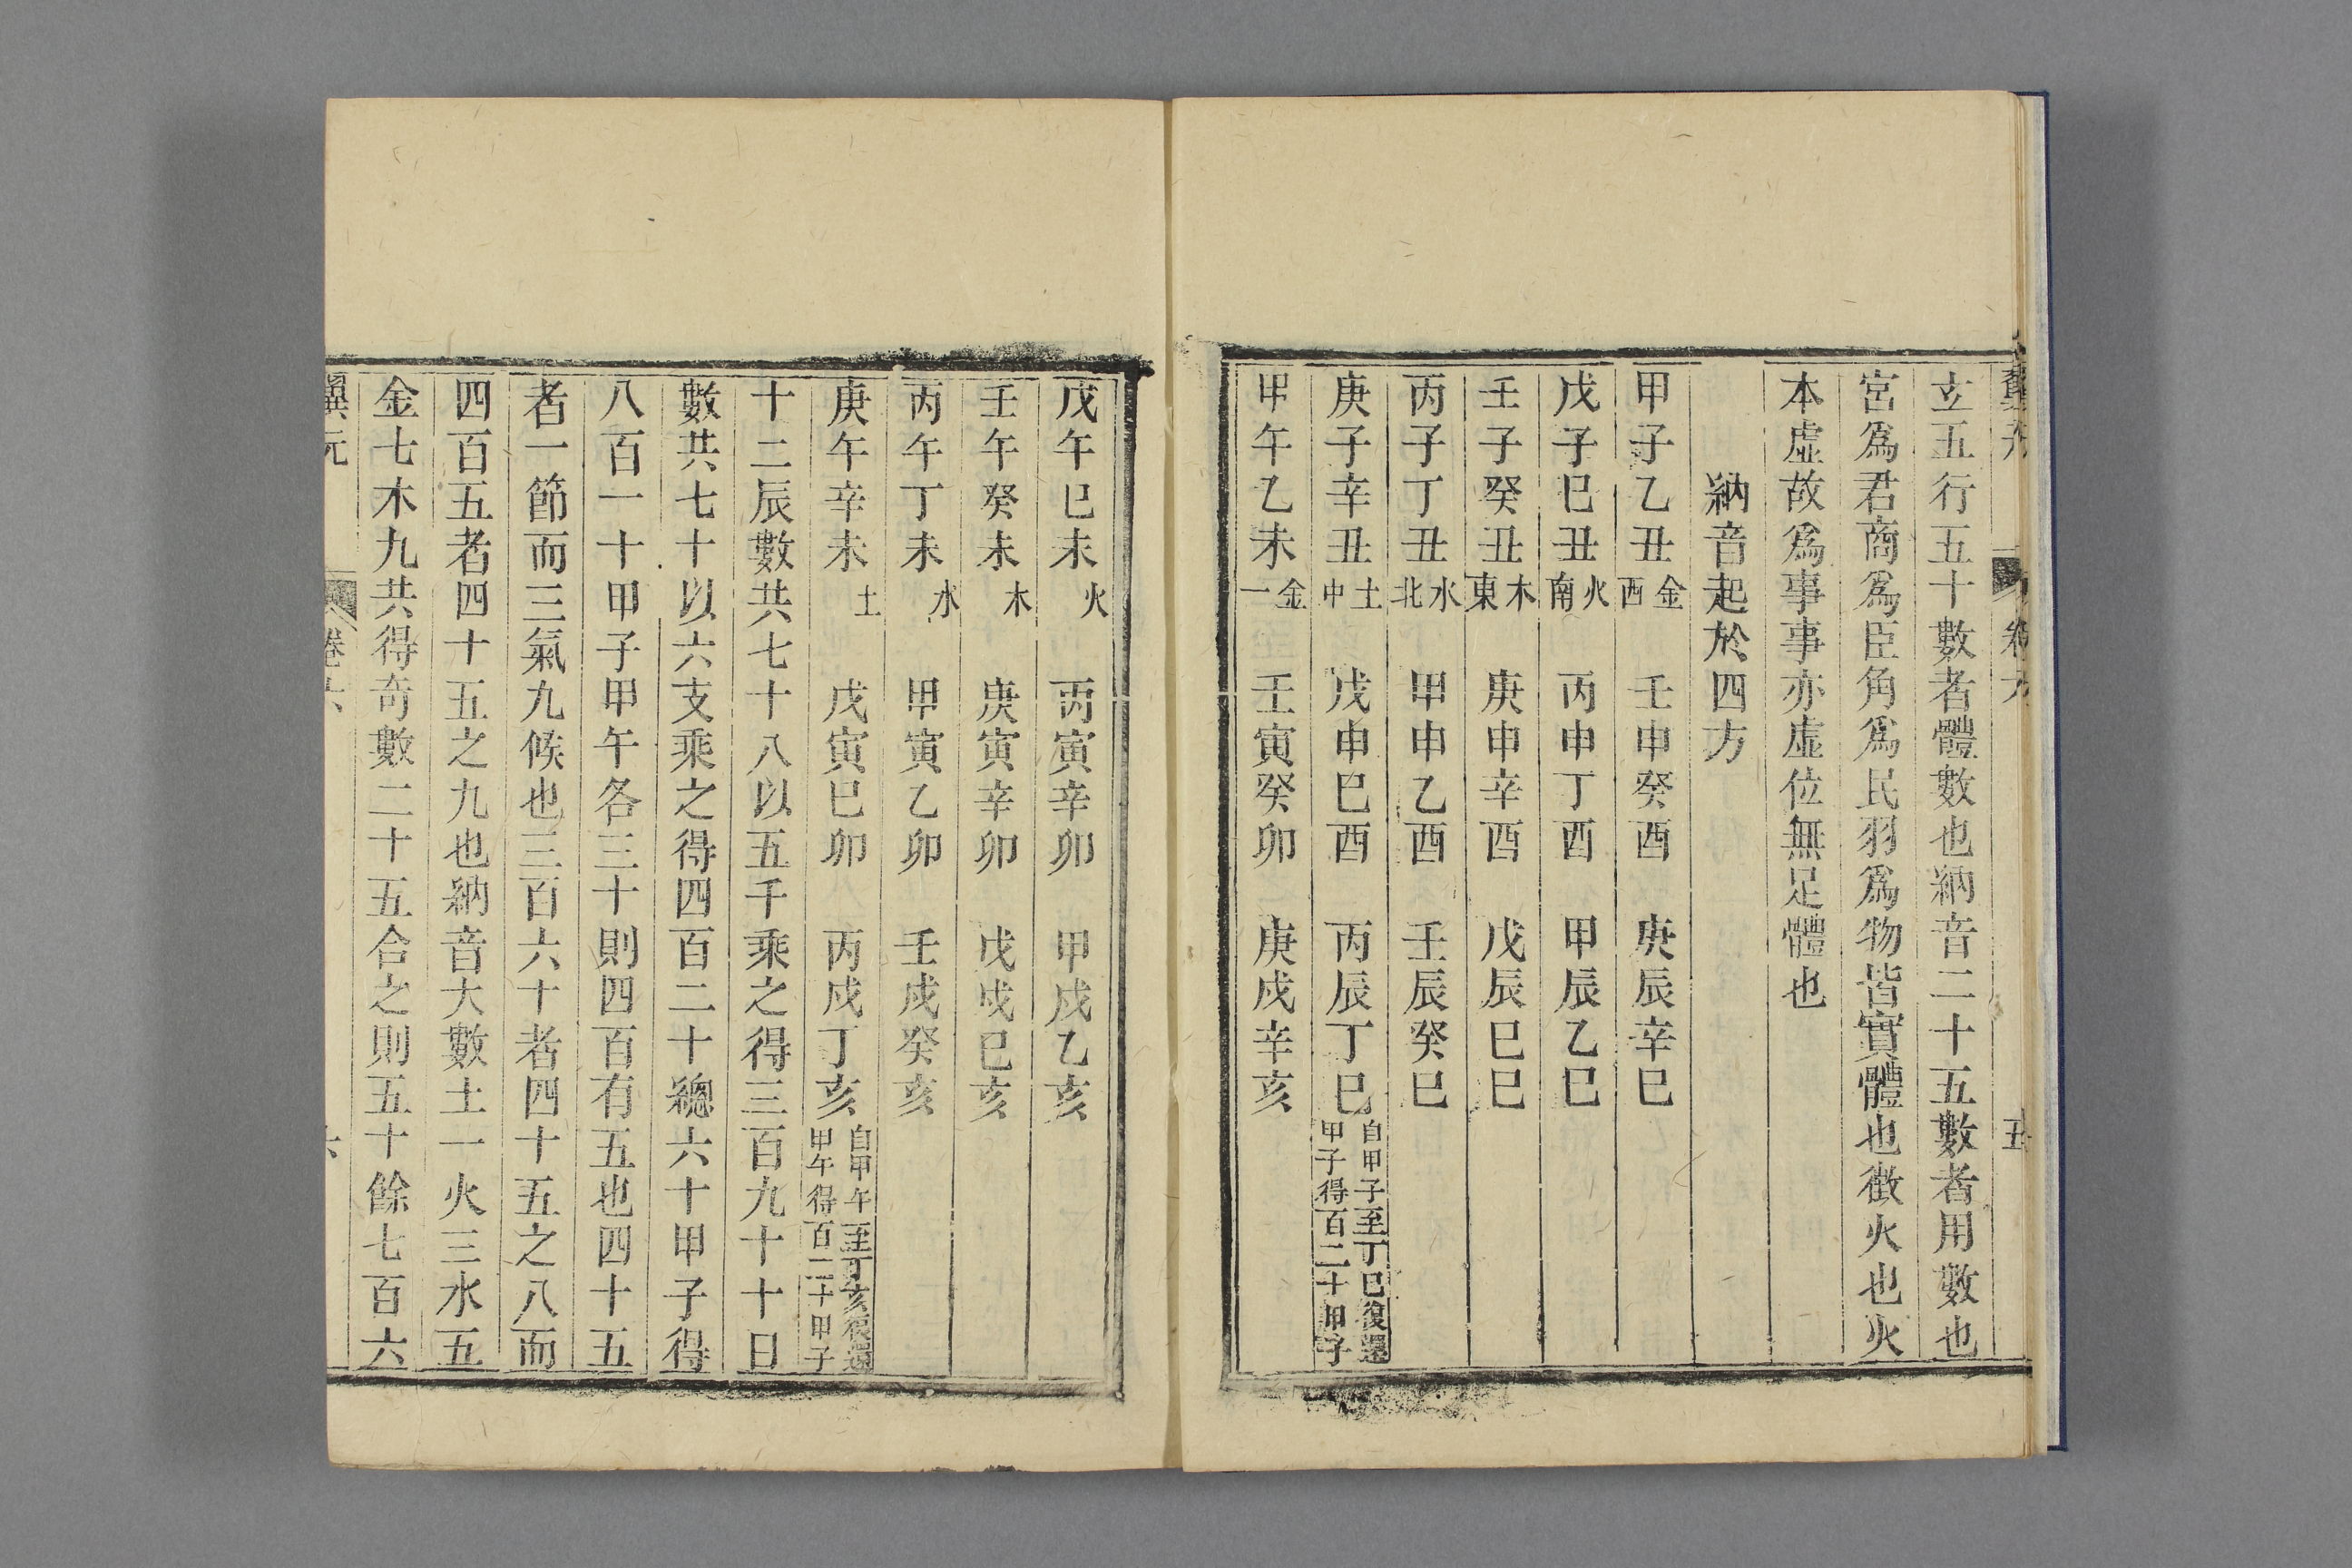 立五行五十數者體數也納音二十五數者用數也
宮爲君商爲臣角爲民羽爲物皆實體也徵火也火
本虛故爲事事亦虛位無足體也
納音起於四方
甲子乙丑金西 壬申癸酉 庚辰辛巳
戊子己丑火南 丙申丁酉 甲辰乙巳
壬子癸丑木東 庚申辛酉 戊辰己巳
丙子丁丑水北 甲申乙酉 壬辰癸巳
庚子辛丑土中 戊申己酉 丙辰丁巳自甲子至丁巳復還甲子得百二十甲子
甲午乙未金一 壬寅癸卯 庚戌辛亥
戊午己未火 丙寅辛卯 甲戌乙亥
壬午癸未木 庚寅辛卯 戊戌己亥
丙午丁未水 甲寅乙卯 壬戌癸亥
庚午辛未土 戊寅己卯 丙戌丁亥自甲午至丁亥復還甲午得百二十甲子
十二辰數共七十八以五千乘之得三百九十十日
數共七十以六支乘之得四百二十總六十甲子得
八百一十甲子甲午各三十則四百有五也四十五
者一節而三氣九候也三百六十者四十五之八而
四百五者四十五之九也納音大數土一火三水五
金七木九共得奇數二十五合之則五十餘七百六
翼元 卷六